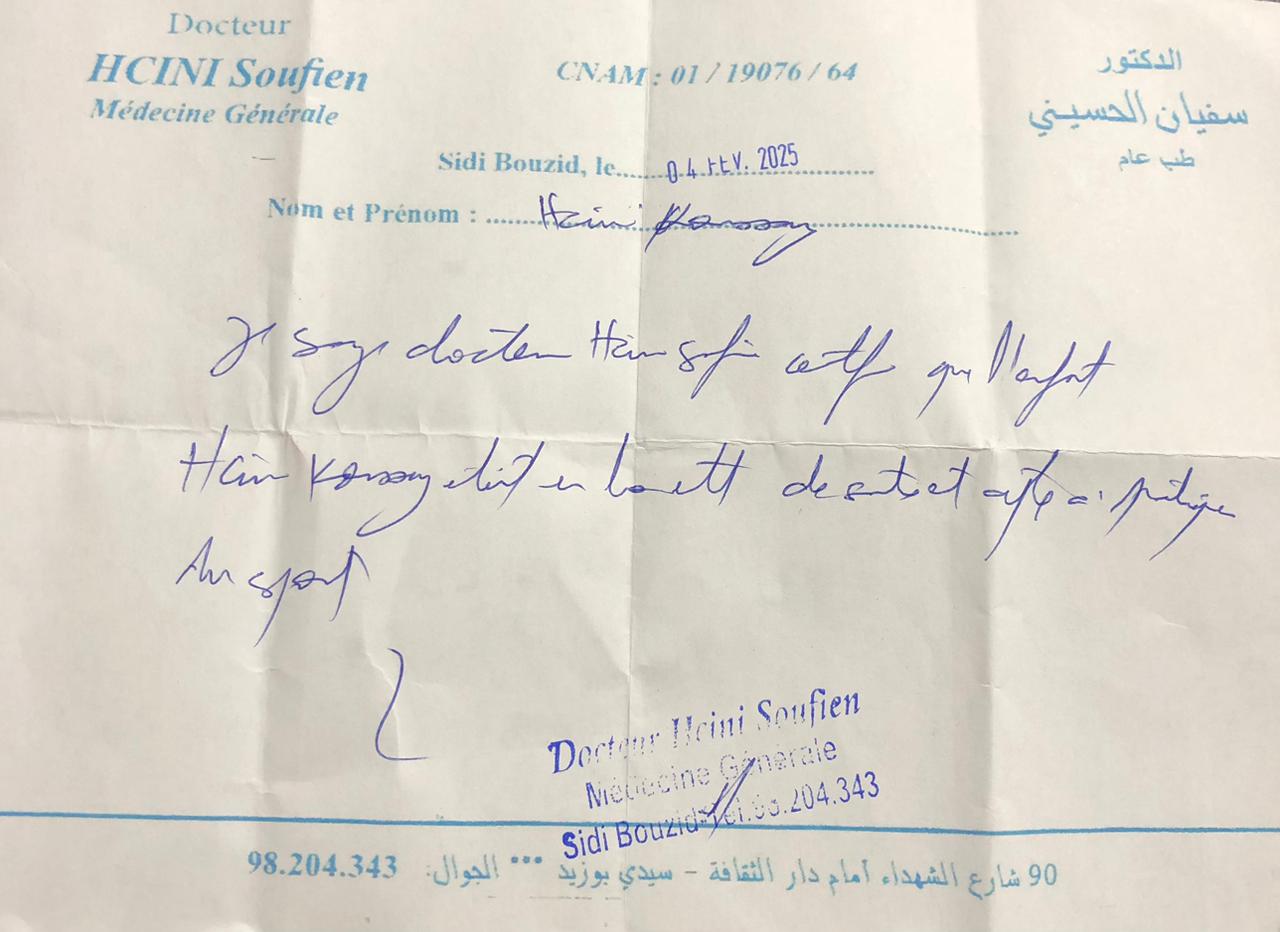 Docteur
HCINI Soufien
Médecine Générale
CNAM : 01 / 19076 / 64
الدكتور
سفيان الحسيني
طب عام
Sidi Bouzid, le 04 FEV. 2025
Nom et Prénom : Hcini
Je docteur Hcini certifie que l'enfant
Hcini en de santé et apte à pratiquer
du sport
Docteur Hcini Soufien
Médecine Générale
Sidi Bouzid Tel.98.204.343
90 شارع الشهداء أمام دار الثقافة - سيدي بوزيد *** الجوال: 98.204.343